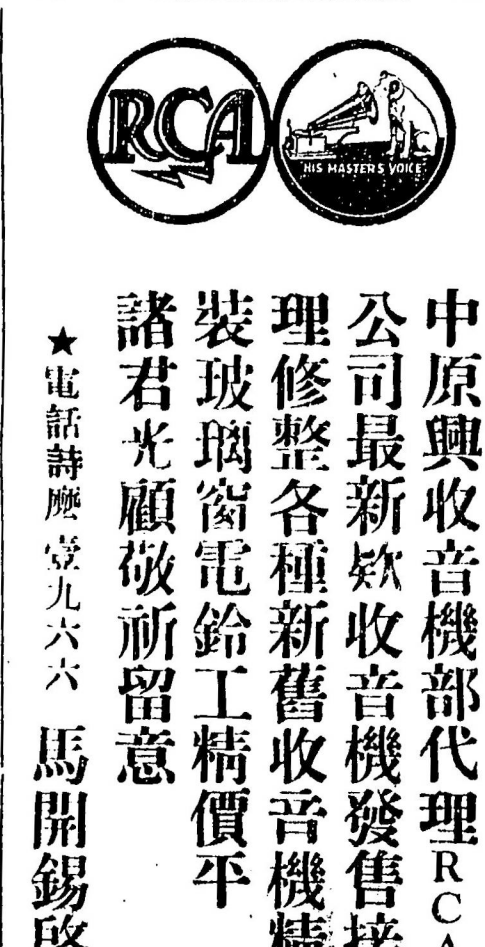 RCA
HIS MASTER'S VOICE
中原興收音機部代理RCA
公司最新欵收音機發售接
理修整各種新舊收音機精
裝玻璃窗電鈴工精價平
諸君光顧敬祈留意
★電話詩麽壹九六六 馬開錫啟